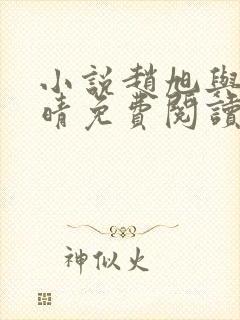 小說趙旭與
晴免費閱讀
神似火